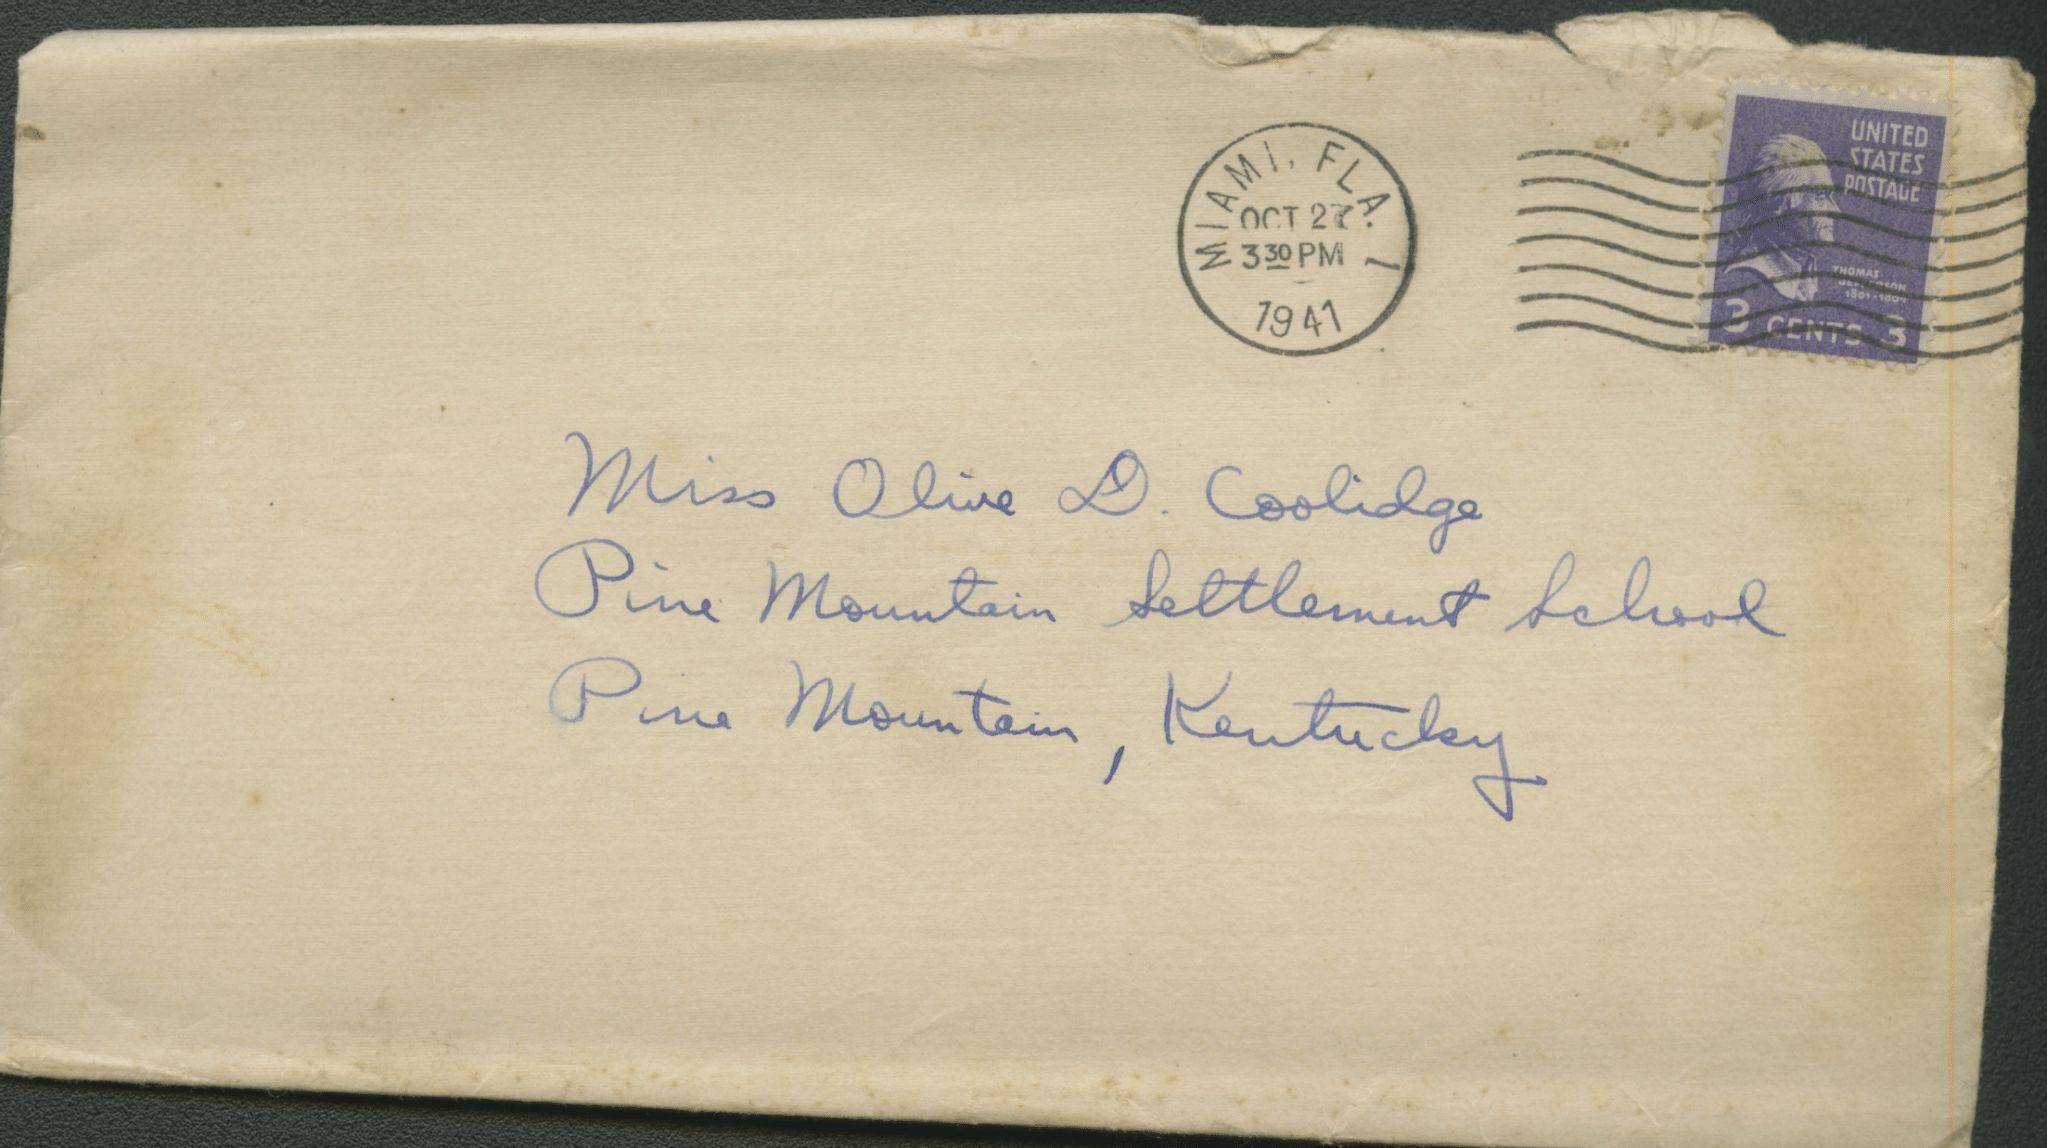 MIAMI, FLA. 1
OCT 27
3 30 PM
1941
UNITED
STATES
POSTAGE
THOMAS
JEFFERSON
1801-1809
3 CENTS 3
Miss Olive D. Coolidge
Pine Mountain Settlement School
Pine Mountain, Kentucky